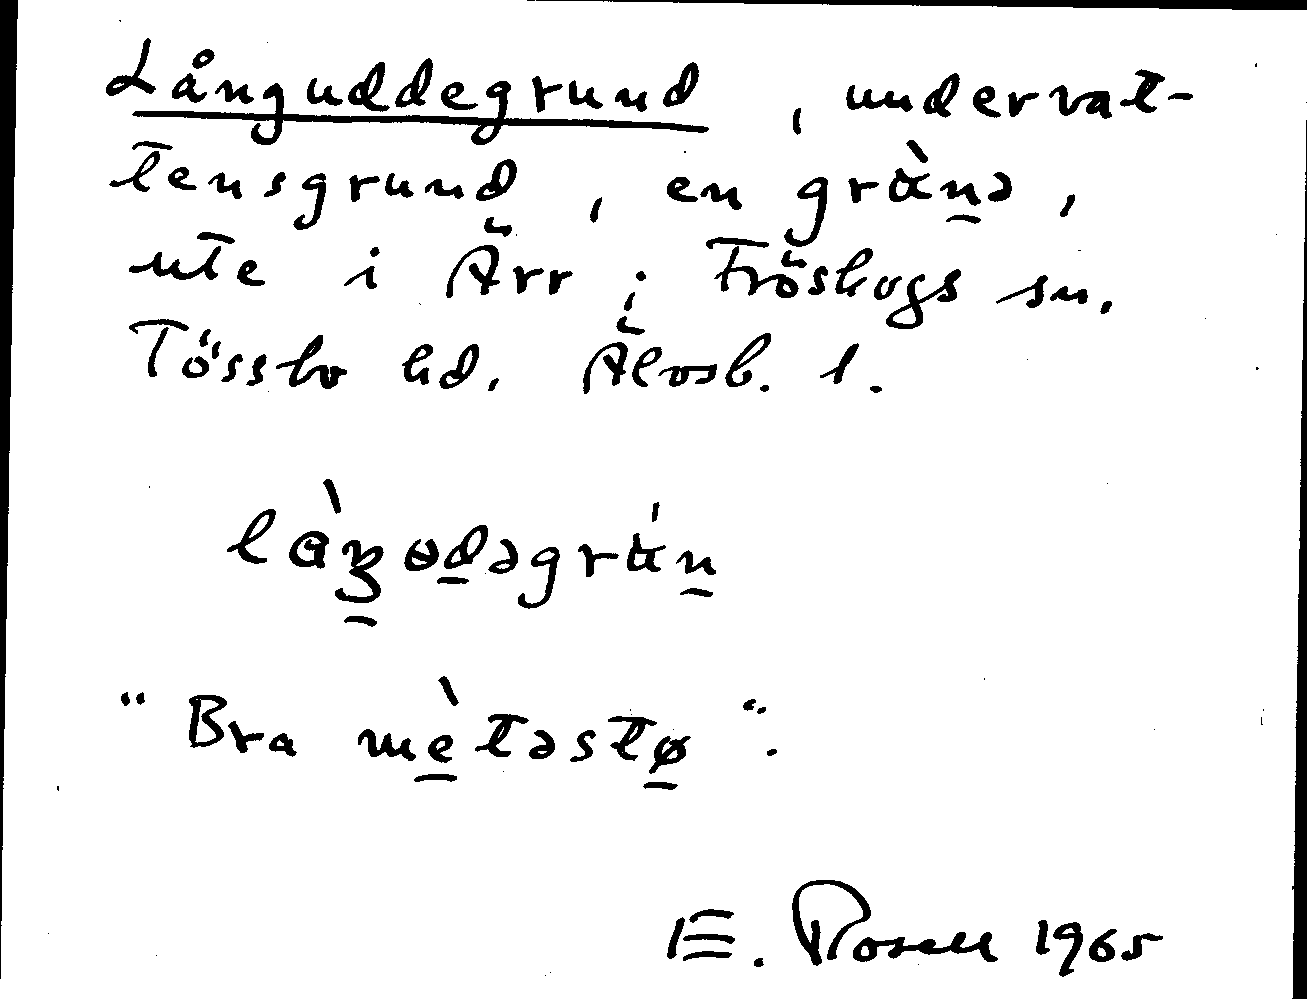 Långuddegrund, undervat-
tensgrund, en grànə,
ute i Ärr i Fröskogs sn.
Tössbo hd. Älvsb. l.
"Bra mètəstø".
E. Rosell 1965